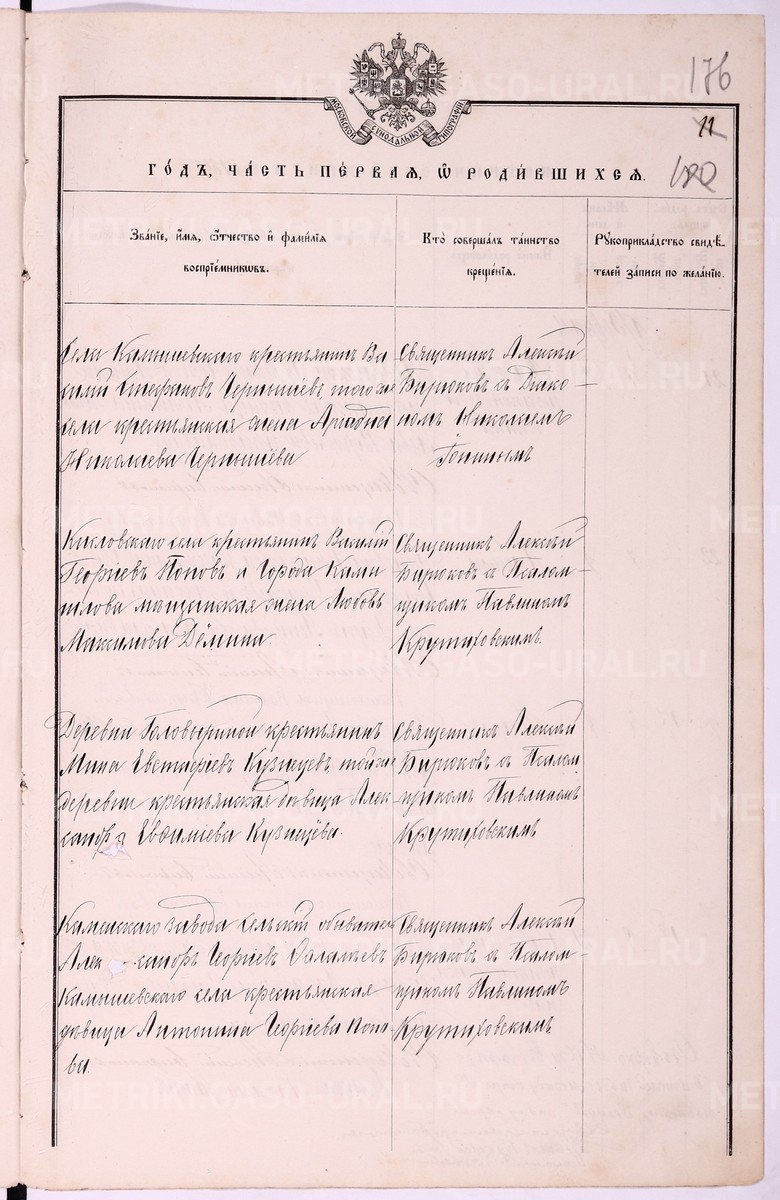 176
11
180
МОСКОВСКОЙ СѴНОДАЛЬНОЙ ТИПОГРАФІИ
ГО́ДЪ, ЧА́СТЬ ПЕ́РВАЯ, Ѽ РОДИ́ВШИХСЯ.
Зва́нїе, и́мя, ѻ҆́тчество и҆ фами́лїя
воспрїе́мниковъ.
Кто̀ соверша́лъ та́инство
креще́нїя.
Рꙋкоприкла́дство свидѣ́-
телей за́писи по жела́нїю.
Села Камышевскаго крестьянинъ Ва-
силій Стефановъ Чернышевъ, того же
села крестьянская жена Аріадна
Николаева Чернышева
Священникъ Алексѣй
Бирюковъ съ Діако-
номъ Николаемъ
Кисловскаго села крестьянинъ Василій
Георгіевъ Поповъ и Города Камы-
шлова мѣщанская жена Любовь
Максимова Дёмина
Священникъ Алексѣй
Бирюковъ съ Псалом-
щикомъ Павлиномъ
Крутиховскимъ.
Деревни Головыриной крестьянинъ
Мина Евстафіевъ Кузнецовъ, той же
деревни крестьянская дѣвица Алек-
сандра Евѳиміева Кузнецова.
Священникъ Алексѣй
Бирюковъ съ Псалом-
щикомъ Павлиномъ
Крутиховскимъ
Каменскаго завода сельскій обыватель
Александръ Георгіевъ
Камышевскаго села крестьянская
дѣвица Антонина Георгіева Попо-
ва.
Священникъ Алексѣй
Бирюковъ съ Псалом-
щикомъ Павлиномъ
Крутиховскимъ
METRIKI.GASO-URAL.RU